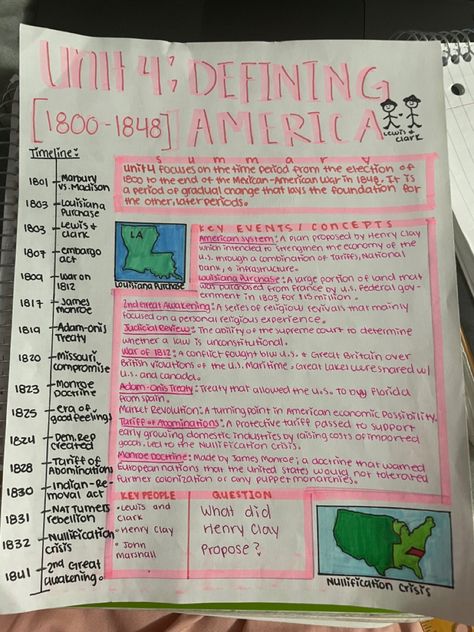 Unit 4: DEFINING
[1800-1848] AMERICA
Lewis &
Clark
Timeline:
1801 Marbury
vs. Madison
1803 Louisiana
Purchase
1803 Lewis &
Clark
1807 embargo
act
1809 war on
1812
1817 James
monroe
1819 Adam-onis
Treaty
1820 missouri
compromise
1823 monroe
Doctrine
1825 era of
good feelings
1824 Dem. Rep
created
1828 Tariff of
Abominations
1830 Indian-Re-
moval act
1831 NAT turners
rebellion
1832 Nullification
crisis
1841 2nd Great
awakening
summary
Unit 4 focuses on the time period from the election of
1800 to the end of the Mexican-American war in 1848. It is
a period of gradual change that lays the foundation for
the other, later periods.
LA
Louisiana Purchase
KEY EVENTS/CONCEPTS
American System: A plan proposed by Henry Clay
which intended to strengthen the economy of the
U.S. through a combination of Tariffs, National
bank, & infrastructure.
Louisiana Purchase: A large portion of land that
was purchased from france by U.S. federal gov-
ernment in 1803 for $15 million.
Awakening: A series of religious revivals that mainly
focused on a personal religious experience.
Judicial Review: The ability of the supreme court to determine
whether a law is unconstitutional.
War of 1812: A conflict fought b/w U.S. & Great Britain over
British violations of the U.S. Maritime, Great lakes were shared w/
U.S. and canada.
Adam-Onis Treaty: Treaty that allowed the U.S. to own florida
from spain.
Market Revolution: A turning point in American economic possibility.
Tariff of Abominations: A protective tariff passed to support
early growing domestic industries by raising costs of imported
goods, led to the Nullification crisis.
Monroe Doctrine: Made by James Monroe; a doctrine that warned
European nations that the United States would not tolerate
further colonization or any puppet monarchies.
KEY PEOPLE
• Lewis and
Clark
• Henry Clay
• John
Marshall
QUESTION
What did
Henry Clay
Propose?
Nullification Crisis